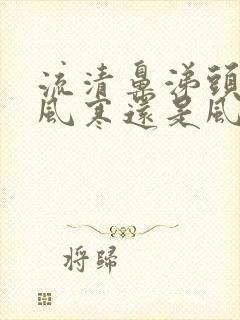 流清鼻涕頭
風寒還是風
將歸